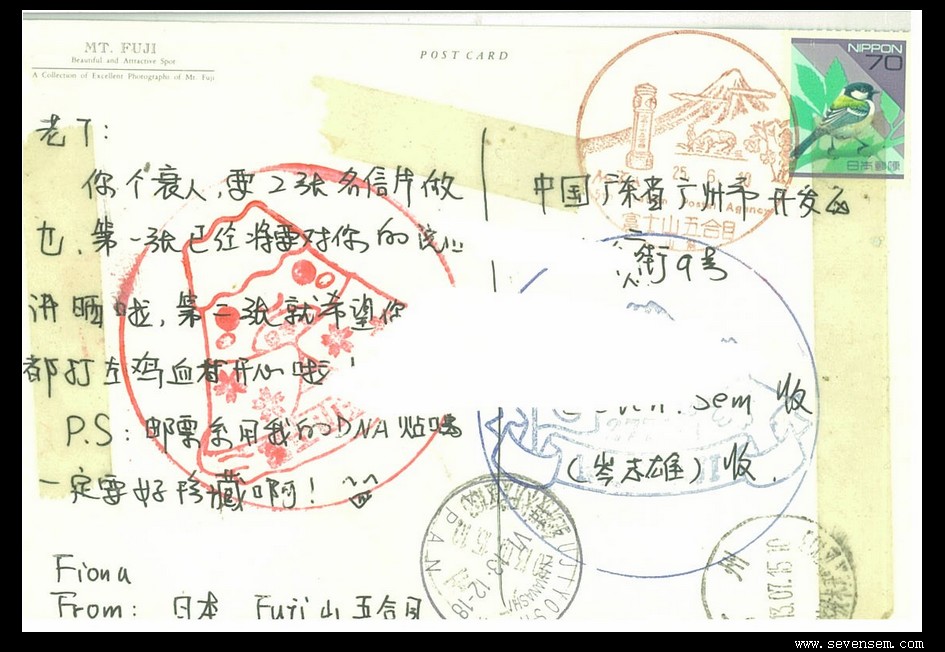 MT. FUJI
Beautiful and Attractive Spot
A Collection of Excellent Photographs of Mt. Fuji
POST CARD
NIPPON
70
日本郵便
25. 6. 10
Postal Agency
富士山五合目
老丁:
你个衰人,要2张名信片做
也,第一张已经将要对你的说心
讲晒啦,第二张就希望你
都打左鸡血有开心啦!
P.S: 邮票系用我的DNA粘嘅
一定要好珍藏啊!
Fiona
From: 日本 Fuji 山 五合目
中国广东省广州市开发区
街9号
.Sem 收
(岑志雄) 收.
FUJIYOSHIDA
YAMANASHI
JAPAN
12-18
州
13.07.15 10
www.sevensem.com